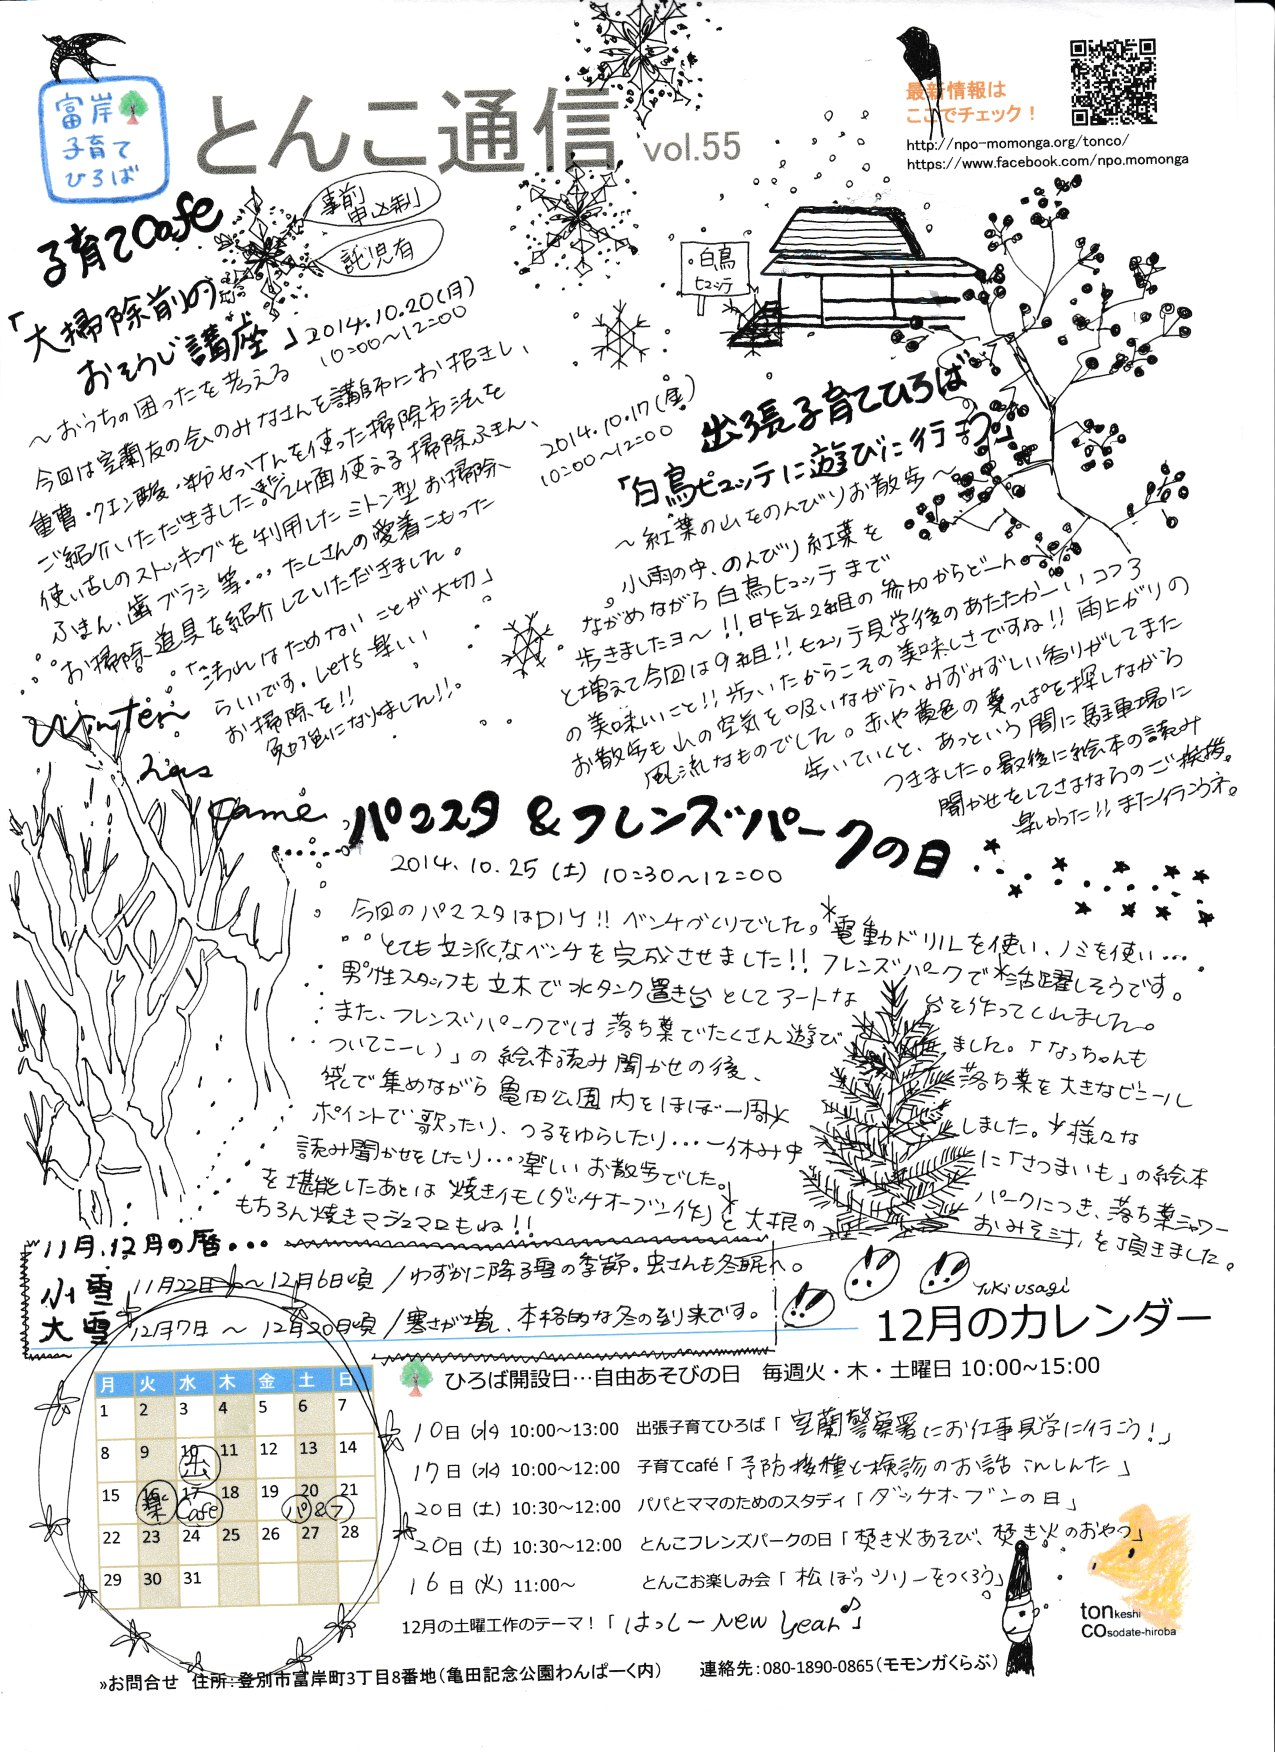 富岸
子育て
ひろば
とんこ通信 vol.55
最新情報は
ここでチェック！
http://npo-momonga.org/tonco/
https://www.facebook.com/npo.momonga
子育てCafe
事前
申込制
託児有
「大掃除前の
おそうじ講座」2014.10.20(月)
10:00～12:00
～おうちの困ったを考える
今回は室蘭友の会のみなさんを講師にお招きし、
重曹・クエン酸・粉せっけんを使った掃除方法を
ご紹介いただきました。24面使える掃除ふきん、
使い古しのストッキングを利用したミトン型お掃除
ふきん、歯ブラシ等...たくさんの愛着こもった
お掃除道具を紹介していただきました。
「汚れはためないことが大切」
らしいです。Let's 楽しい
お掃除を!!
勉強になりました!!
Winter
has
came
白鳥
ヒュッテ
2014.10.17(金)
10:00～12:00
出張子育てひろば
「白鳥ヒュッテに遊びに行こう」
～紅葉の山をのんびりお散歩～
小雨の中、のんびり紅葉を
ながめながら白鳥ヒュッテまで
歩きましたヨ～!!昨年2組の参加からどーん
と増えて今回は9組!!ヒュッテ見学後のあたたかーいココア
の美味しいこと!!歩いたからこその美味しさですね!!雨上がりの
お散歩も山の空気を吸いながら、みずみずしい香りがしてまた
風流なものでした。赤や黄色の葉っぱを探しながら
歩いていくと、あっという間に駐車場に
つきました。最後に絵本の読み
聞かせをしてさよならのご挨拶。
楽しかった!!また行こうネ。
パマスタ＆フレンズパークの日
2014.10.25(土) 10:30～12:00
今回のパマスタはDIY!! ベンチづくりでした。電動ドリルを使い、ノミを使い...
とても立派なベンチを完成させました!! フレンズパークで活躍しそうです。
男性スタッフも立木で水タンク置き台としてアートな台を作ってくれました。
また、フレンズパークでは落ち葉でたくさん遊びました。「なっちゃんも
ついてこーい」の絵本読み聞かせの後、落ち葉を大きなビニール
袋で集めながら亀田公園内をほぼ一周しました。様々な
ポイントで歌ったり、つるをゆらしたり...一休み中に「さつまいも」の絵本
読み聞かせをしたり...楽しいお散歩でした。パークにつき、落ち葉シャワー
を堪能したあとは焼きイモ(ダッチオーブン作)と大根のおみそ汁を頂きました。
もちろん焼きマシュマロもね!!
11月、12月の暦...
小雪 11月22日～12月6日頃/わずかに降る雪の季節。虫さんも冬眠れ。
大雪 12月7日～12月20日頃/寒さが増し、本格的な冬の到来です。
Yuki usagi
12月のカレンダー
月 火 水 木 金 土 日
1 2 3 4 5 6 7
8 9 10 11 12 13 14
出
15 16 17 18 19 20 21
楽 Cafe パ&フ
22 23 24 25 26 27 28
29 30 31
ひろば開設日…自由あそびの日 毎週火・木・土曜日 10:00～15:00
10日(水) 10:00～13:00 出張子育てひろば「室蘭警察署にお仕事見学に行こう!」
17日(水) 10:00～12:00 子育てcafé「予防接種と検診のお話 inしんた」
20日(土) 10:30～12:00 パパとママのためのスタディ「ダッチオーブンの日」
20日(土) 10:30～12:00 とんこフレンズパークの日「焚き火あそび、焚き火のおやつ」
16日(火) 11:00～ とんこお楽しみ会「松ぼっツリーをつくろう」
12月の土曜工作のテーマ！「はっしーNew Year♪」
tonkeshi
COsodate-hiroba
»お問合せ 住所：登別市富岸町3丁目8番地(亀田記念公園わんぱーく内) 連絡先：080-1890-0865(モモンガくらぶ)